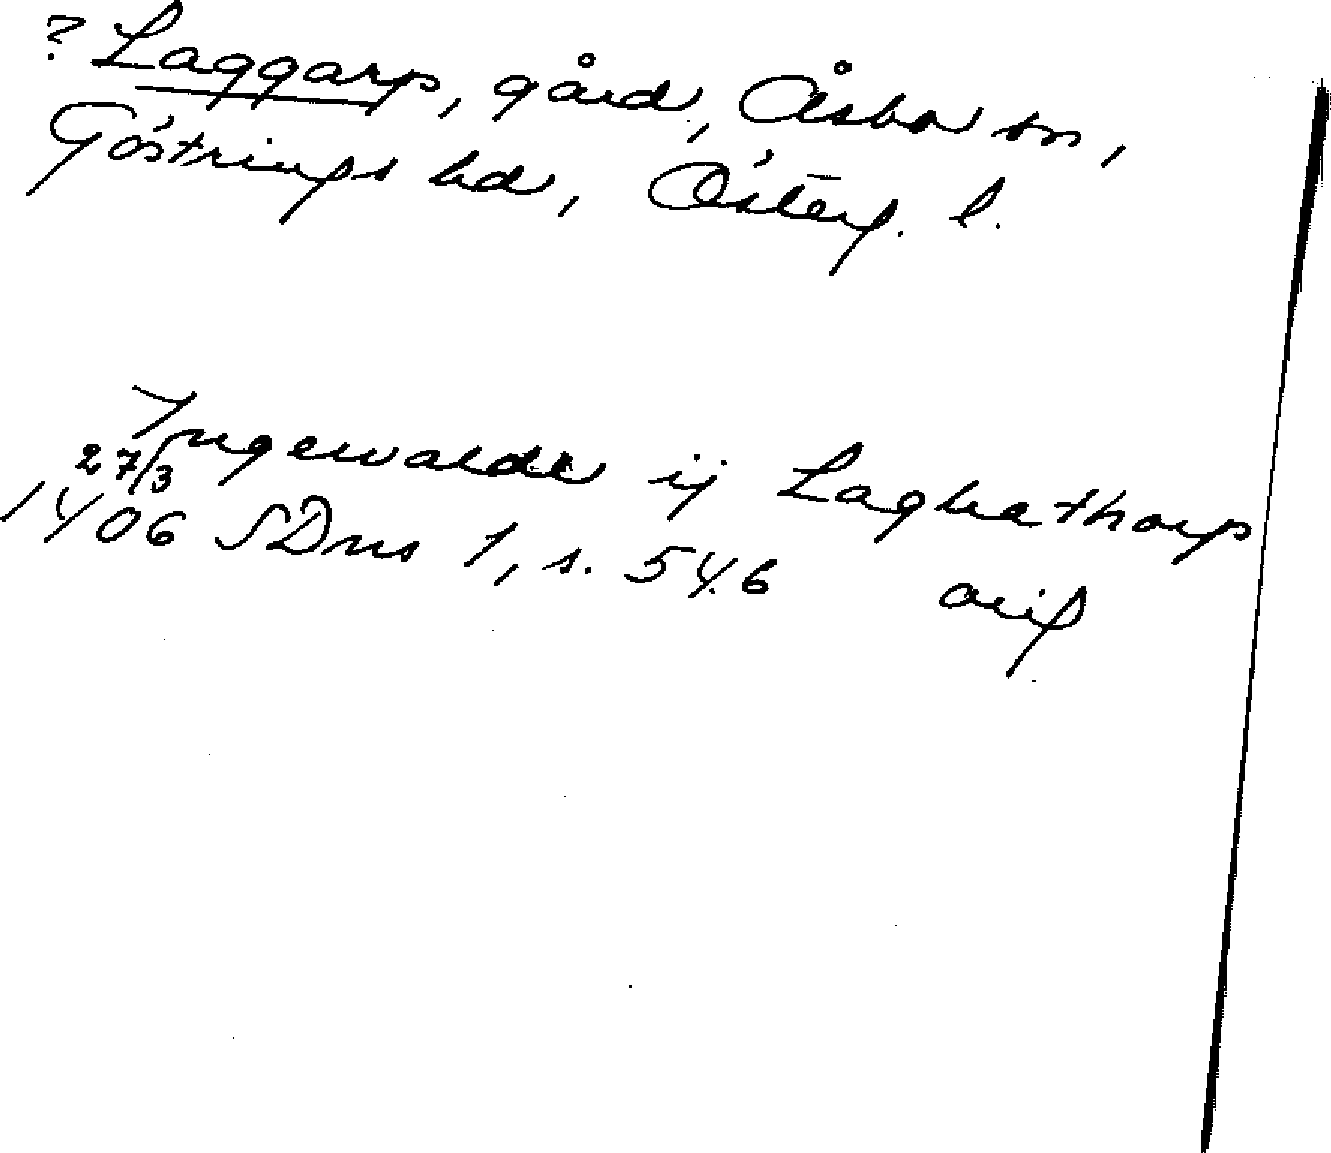 ? Laggarp, gård, Åsbo sn,
Göstrings hd, Österg. l.
Ingewalde ij Laghathorp
27/3 1406 SDns 1, s. 546 orig